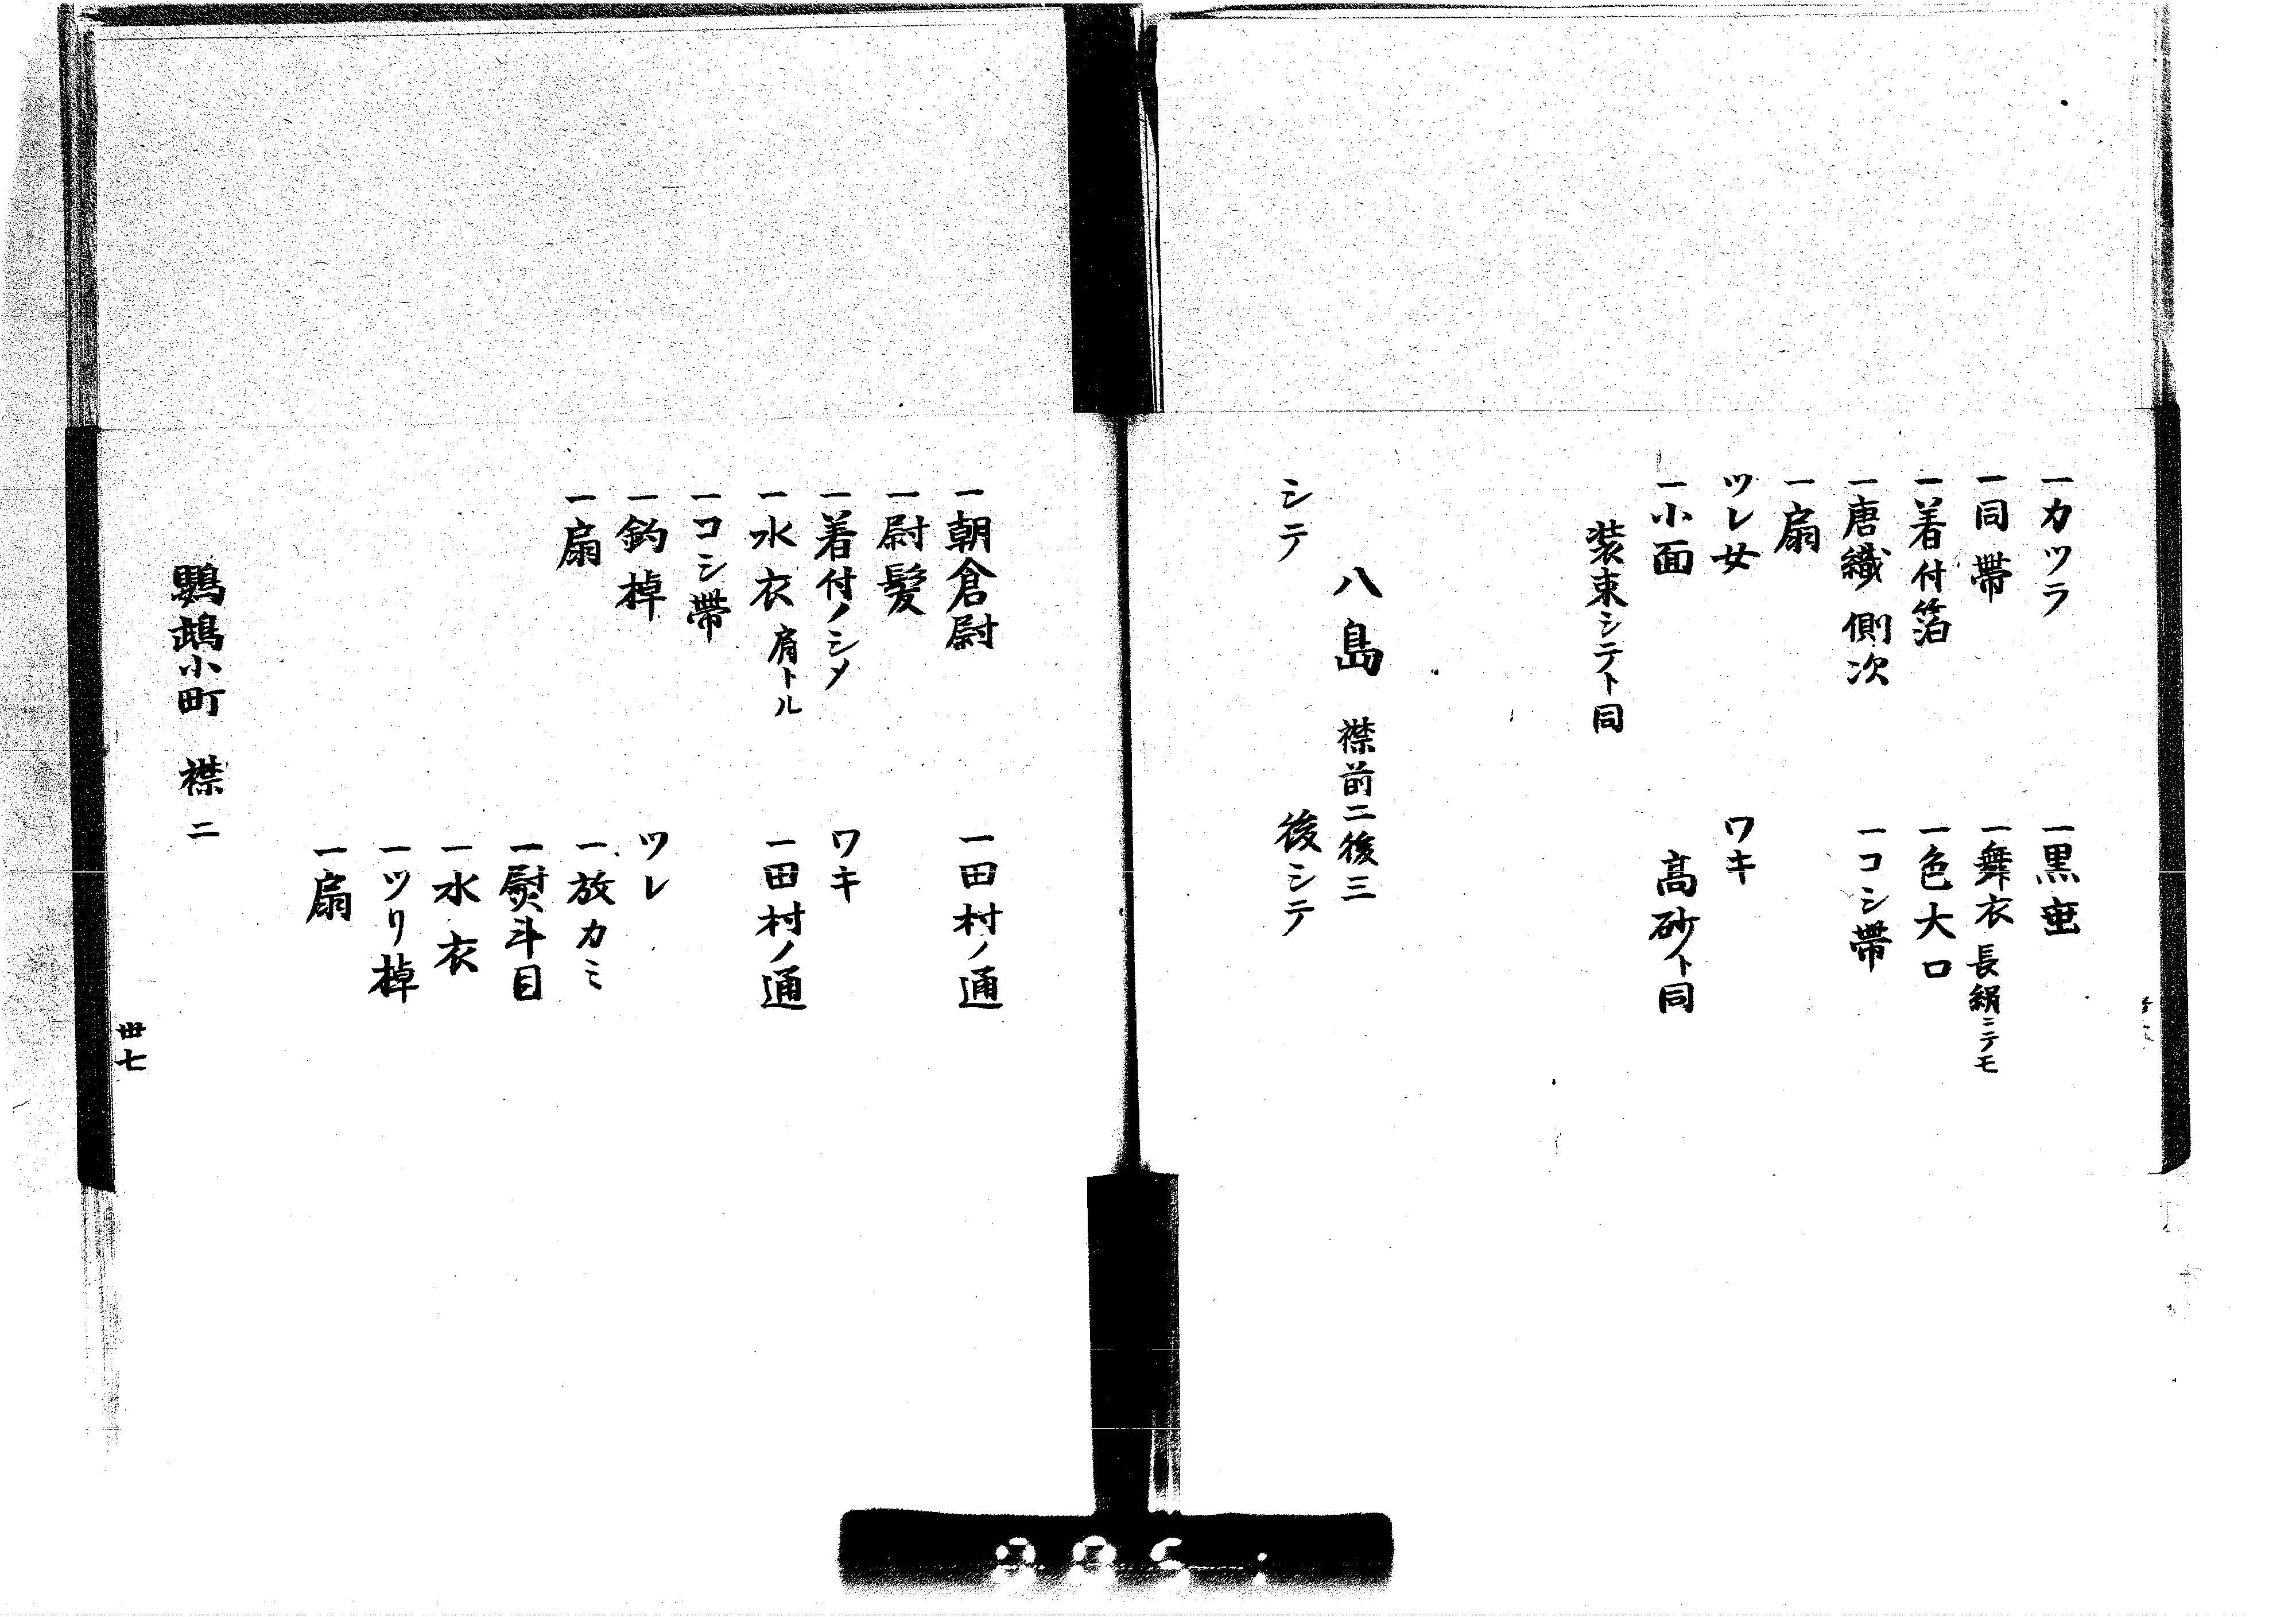 一カツラ
一同帯
一着付箔
一唐織 側次
一扇
ツレ女
一小面
装束シテト同
一黒垂
一舞衣 長絹ニテモ
一色大口
一コシ帯
ワキ
高砂ト同
八島 襟前二後三
シテ
後シテ
一朝倉尉
一尉髪
一着付ノシメ
一水衣 肩トル
一コシ帯
一釣棹
一扇
一田村ノ通
ワキ
一田村ノ通
ツレ
一放カミ
一熨斗目
一水衣
一ツリ棹
一扇
鸚鵡小町 襟二
卅七